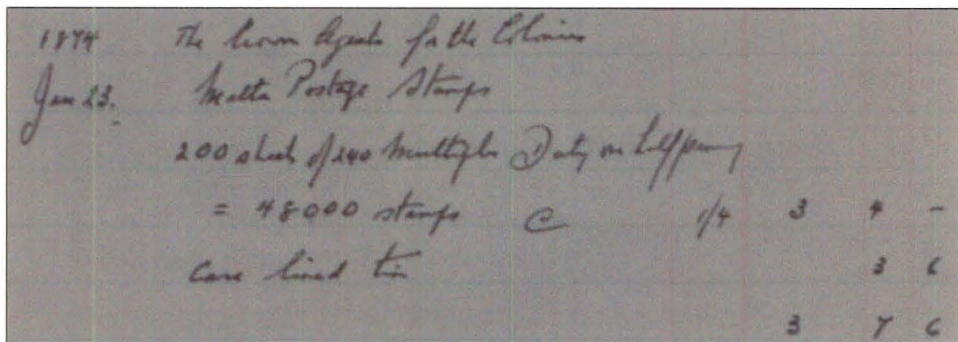 1874 The Crown Agents for the Colonies
Jan 23. Malta Postage Stamps
200 sheets of 240 Multiples Duty on halfpenny
= 48000 stamps @ 1/4 3 4 -
Case lined tin 3 6
3 7 6